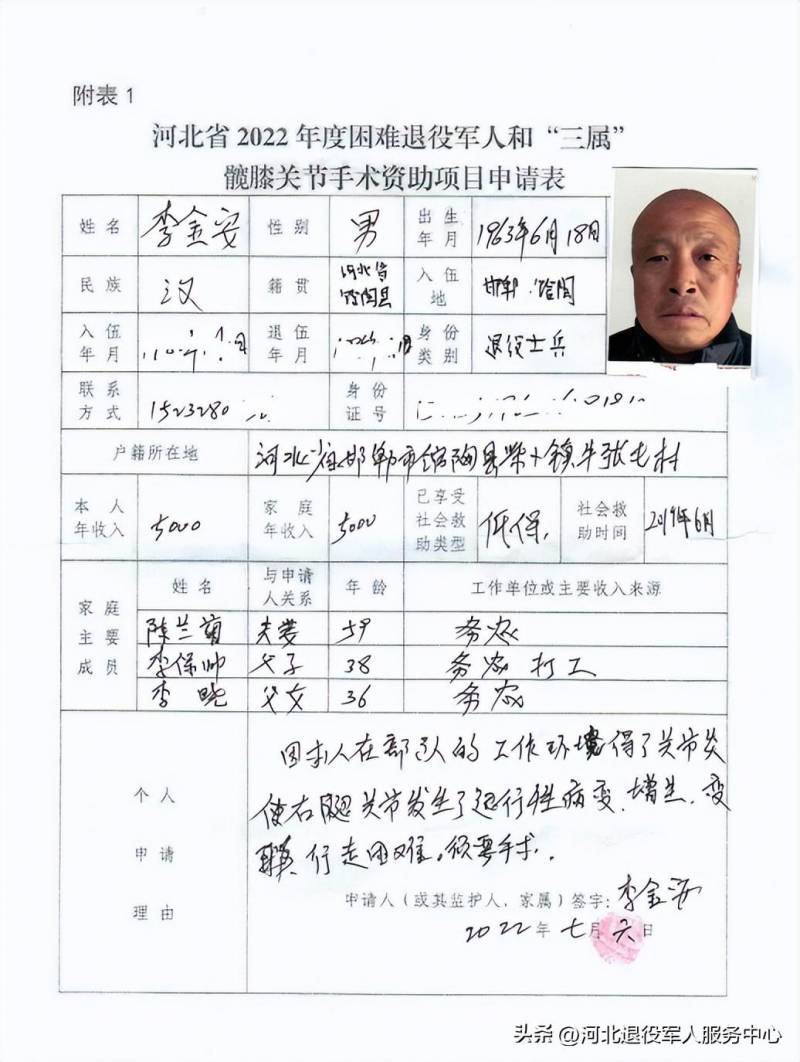 附表1
河北省2022年度困难退役军人和“三属”
髋膝关节手术资助项目申请表
姓名 李金安 性别 男 出生年月 1963年6月18日
民族 汉 籍贯 河北省馆陶县 入伍地 邯郸.馆陶
入伍年月 退伍年月 身份类别 退役士兵
联系方式 1523280 身份证号
户籍所在地 河北省邯郸市馆陶县柴堡镇牛张屯村
本人年收入 5000 家庭年收入 5000 已享受社会救助类型 低保. 社会救助时间 2019年6月
家庭主要成员 姓名 与申请人关系 年龄 工作单位或主要收入来源
陈兰菊 夫妻 59 务农
李保帅 父子 38 务农 打工
李晓 父女 36 务农
个人申请理由
因本人在部队的工作环境得了关节炎
使右腿关节发生了退行性病变.增生.变
行走困难。须要手术.
申请人（或其监护人、家属）签字：李金安
2022年七月六日
头条 @河北退役军人服务中心